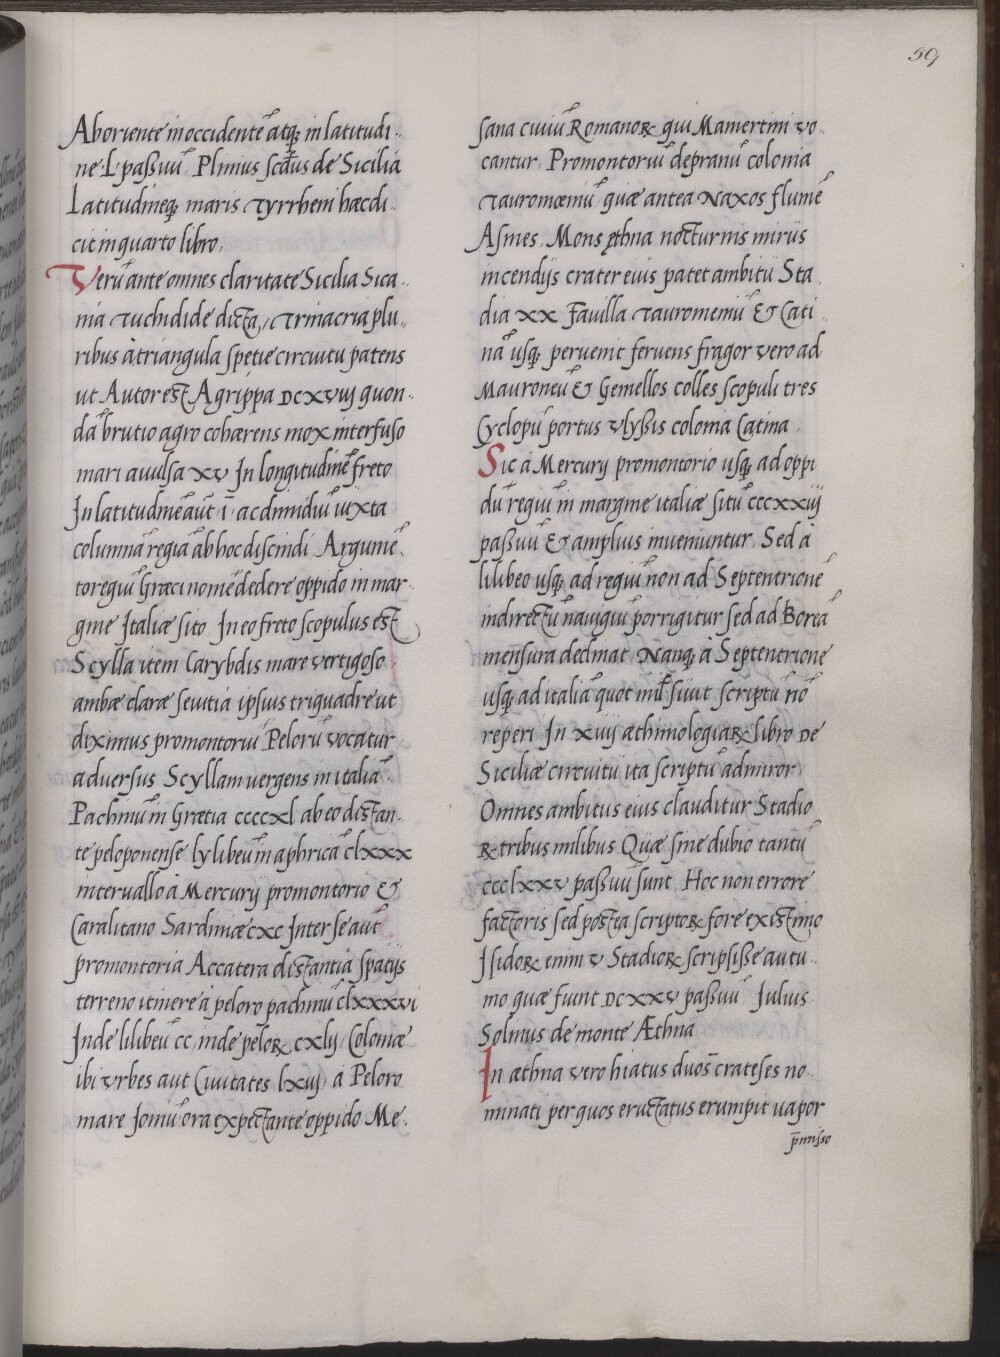 59
Aboriente in occidente᷄ atq; in latitudi.
ne L passuu᷄ Plinius scd̄us de Sicilia
Latitudineq; maris Tyrrheni hæc di.
cit in quarto libro.
Veru᷄ ante omnes claritate Sicilia Sica.
nia Tuchidide dicta, Trinacria plu.
ribus à triangula spetie circuitu patens
ut Autor est Agrippa DCXVIIJ quon.
da᷄ brutio agro cohærens mox interfuso
mari auulsa XV In longitudine᷄ freto
In latitudine᷄ aut᷄ ī ac dimidiu᷄ iuxta
columna᷄ regia᷄ ab hoc discindi Argume᷄.
to regiu᷄ Græci nome᷄ dedere oppido in mar.
gine Italiæ sito. In eo freto scopulus est
Scylla item Carybdis mare vertigoso
ambæ claræ seuitia ipsius triquadre ut
diximus promontoriu᷄ Peloru᷄ vocatur
adversus Scyllam uergens in italia᷄.
Pachinu᷄ in Grætia ccccxl ab eo distan.
te peloponense lylibeu᷄ in aphrica᷄ clxxx
interuallo à Mercurij promontorio &
Caralitano Sardiniæ cxc Inter se aut᷄
promontoria Accatera distantia spatijs
terreno itiniere à peloro pachinu᷄ clxxxvi
Inde lilibeu᷄ cc inde peloꝝ cxlij Coloniæ
ibi vrbes aut Ciuitates lxvij à Peloro
mare Ioniu᷄ ora expectante oppido Me.
sana ciuiu᷄ Romanoꝝ qui Mamertini vo.
cantur. Promontoriu᷄ depranu᷄ colonia
Tauromœniu᷄ quæ antea Naxos flume᷄
Asines. Mons ęthna nocturnis miriis
incendijs crater eius patet ambitu Sta
dia XX Fauilla Tauromeniu᷄ & Cati.
na᷄ usq; peruenit feruens fragor vero ad
Mauroneu᷄ & Gemellos colles scopuli tres
Cyclopu᷄ portus vlyssis colonia Catina.
Sic à Mercurij promontorio usq; ad oppi
du᷄ regiu᷄ in margine italiæ situ᷄ cccxxiij
passuu᷄ & amplius inueniuntur. Sed à
lilibeo usq; ad regiu᷄ non ad Septentrione᷄
indirectu᷄ nauigiu᷄ porrigitur sed ad Borea᷄
mensura declinat Nanq; à Septentrione
usq; ad italia᷄ quot mil᷄ siuit scriptu᷄ nō
reperi In xiiij æthimologiaꝝ libro DE
Siciliæ circuitu ita scriptu᷄ admiror
Omnes ambitus eius clauditur Stadio
ꝝ tribus milibus Quæ sine dubio tantu᷄
ccclxxv passuu sunt. Hoc non errore
factoris sed postea scriptoꝝ fore existimo
Isidoꝝ enim v Stadioꝝ scripsisse autu.
mo quæ fiunt DCXXV passuu᷄ Julius
Solinus de monte Æthna
In æthna vero hiatus duos̄ crateses no.
minati per quos eructatus erumpit uapor
p̄misso